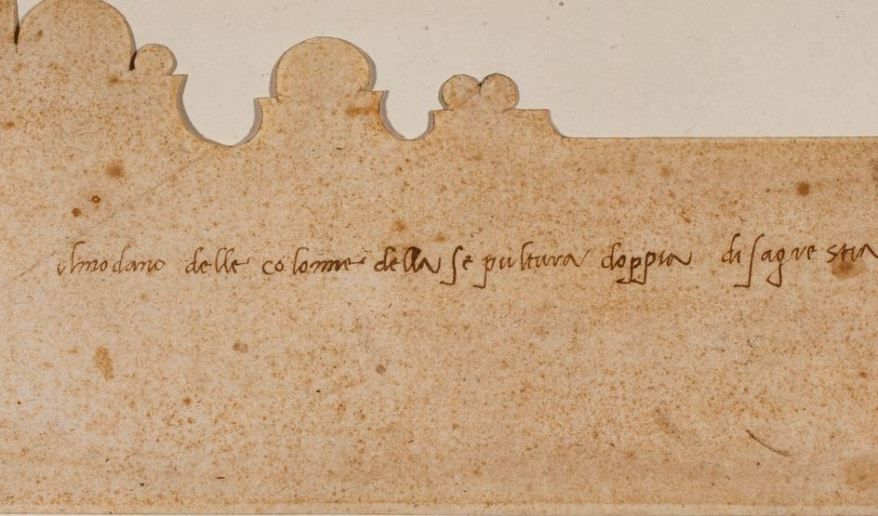 il modano delle colonne della sepultura doppia di sagrestia